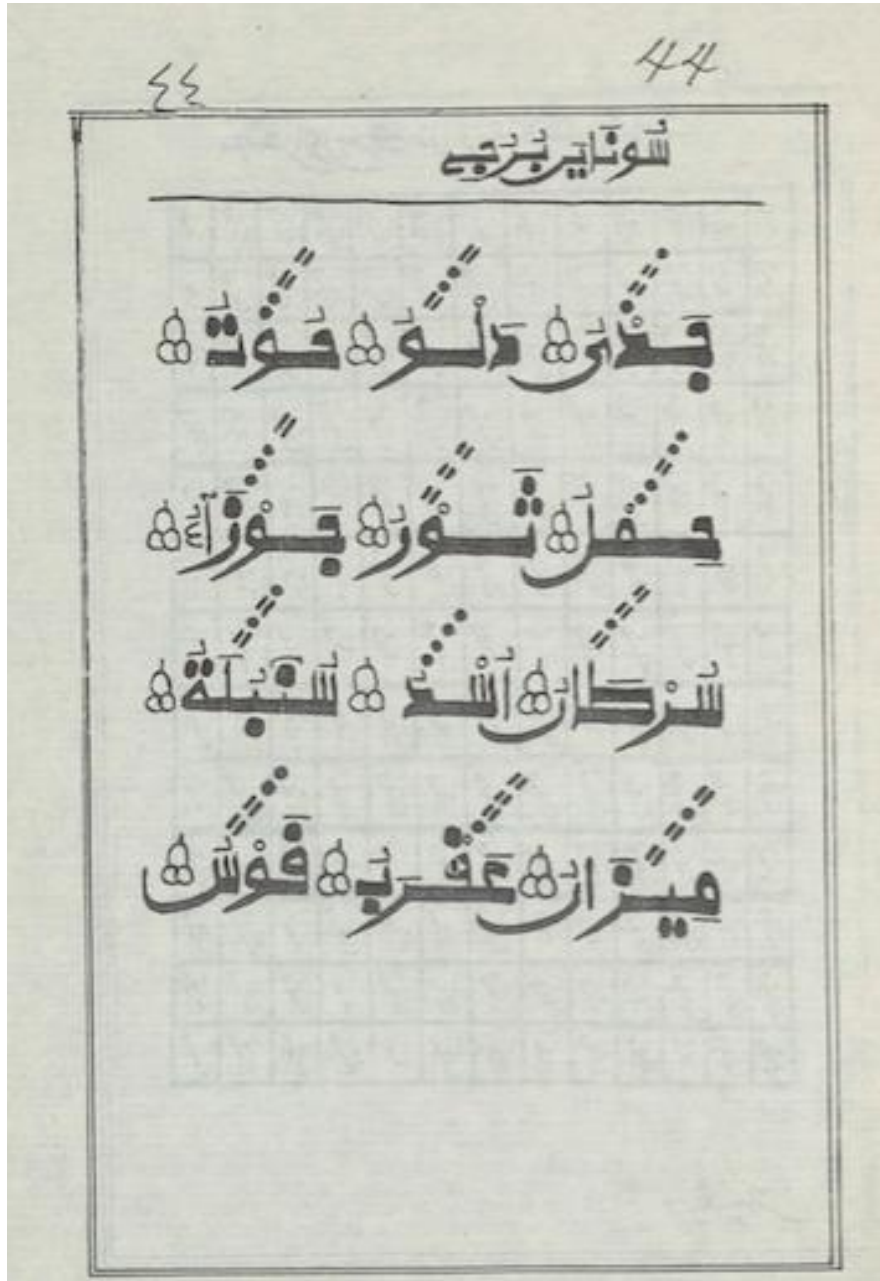 ٤٤ 44
سُونَايِن بُرُجِے
جَدْىُ دَلْوُ حُوتُ
حِمْلُ ثَوْرُ جَوْزَآءُ
سَرْطَانُ اَسْدُ سُنْبُلَةُ
مِيزَانُ عَقْرَبُ قَوْسُ